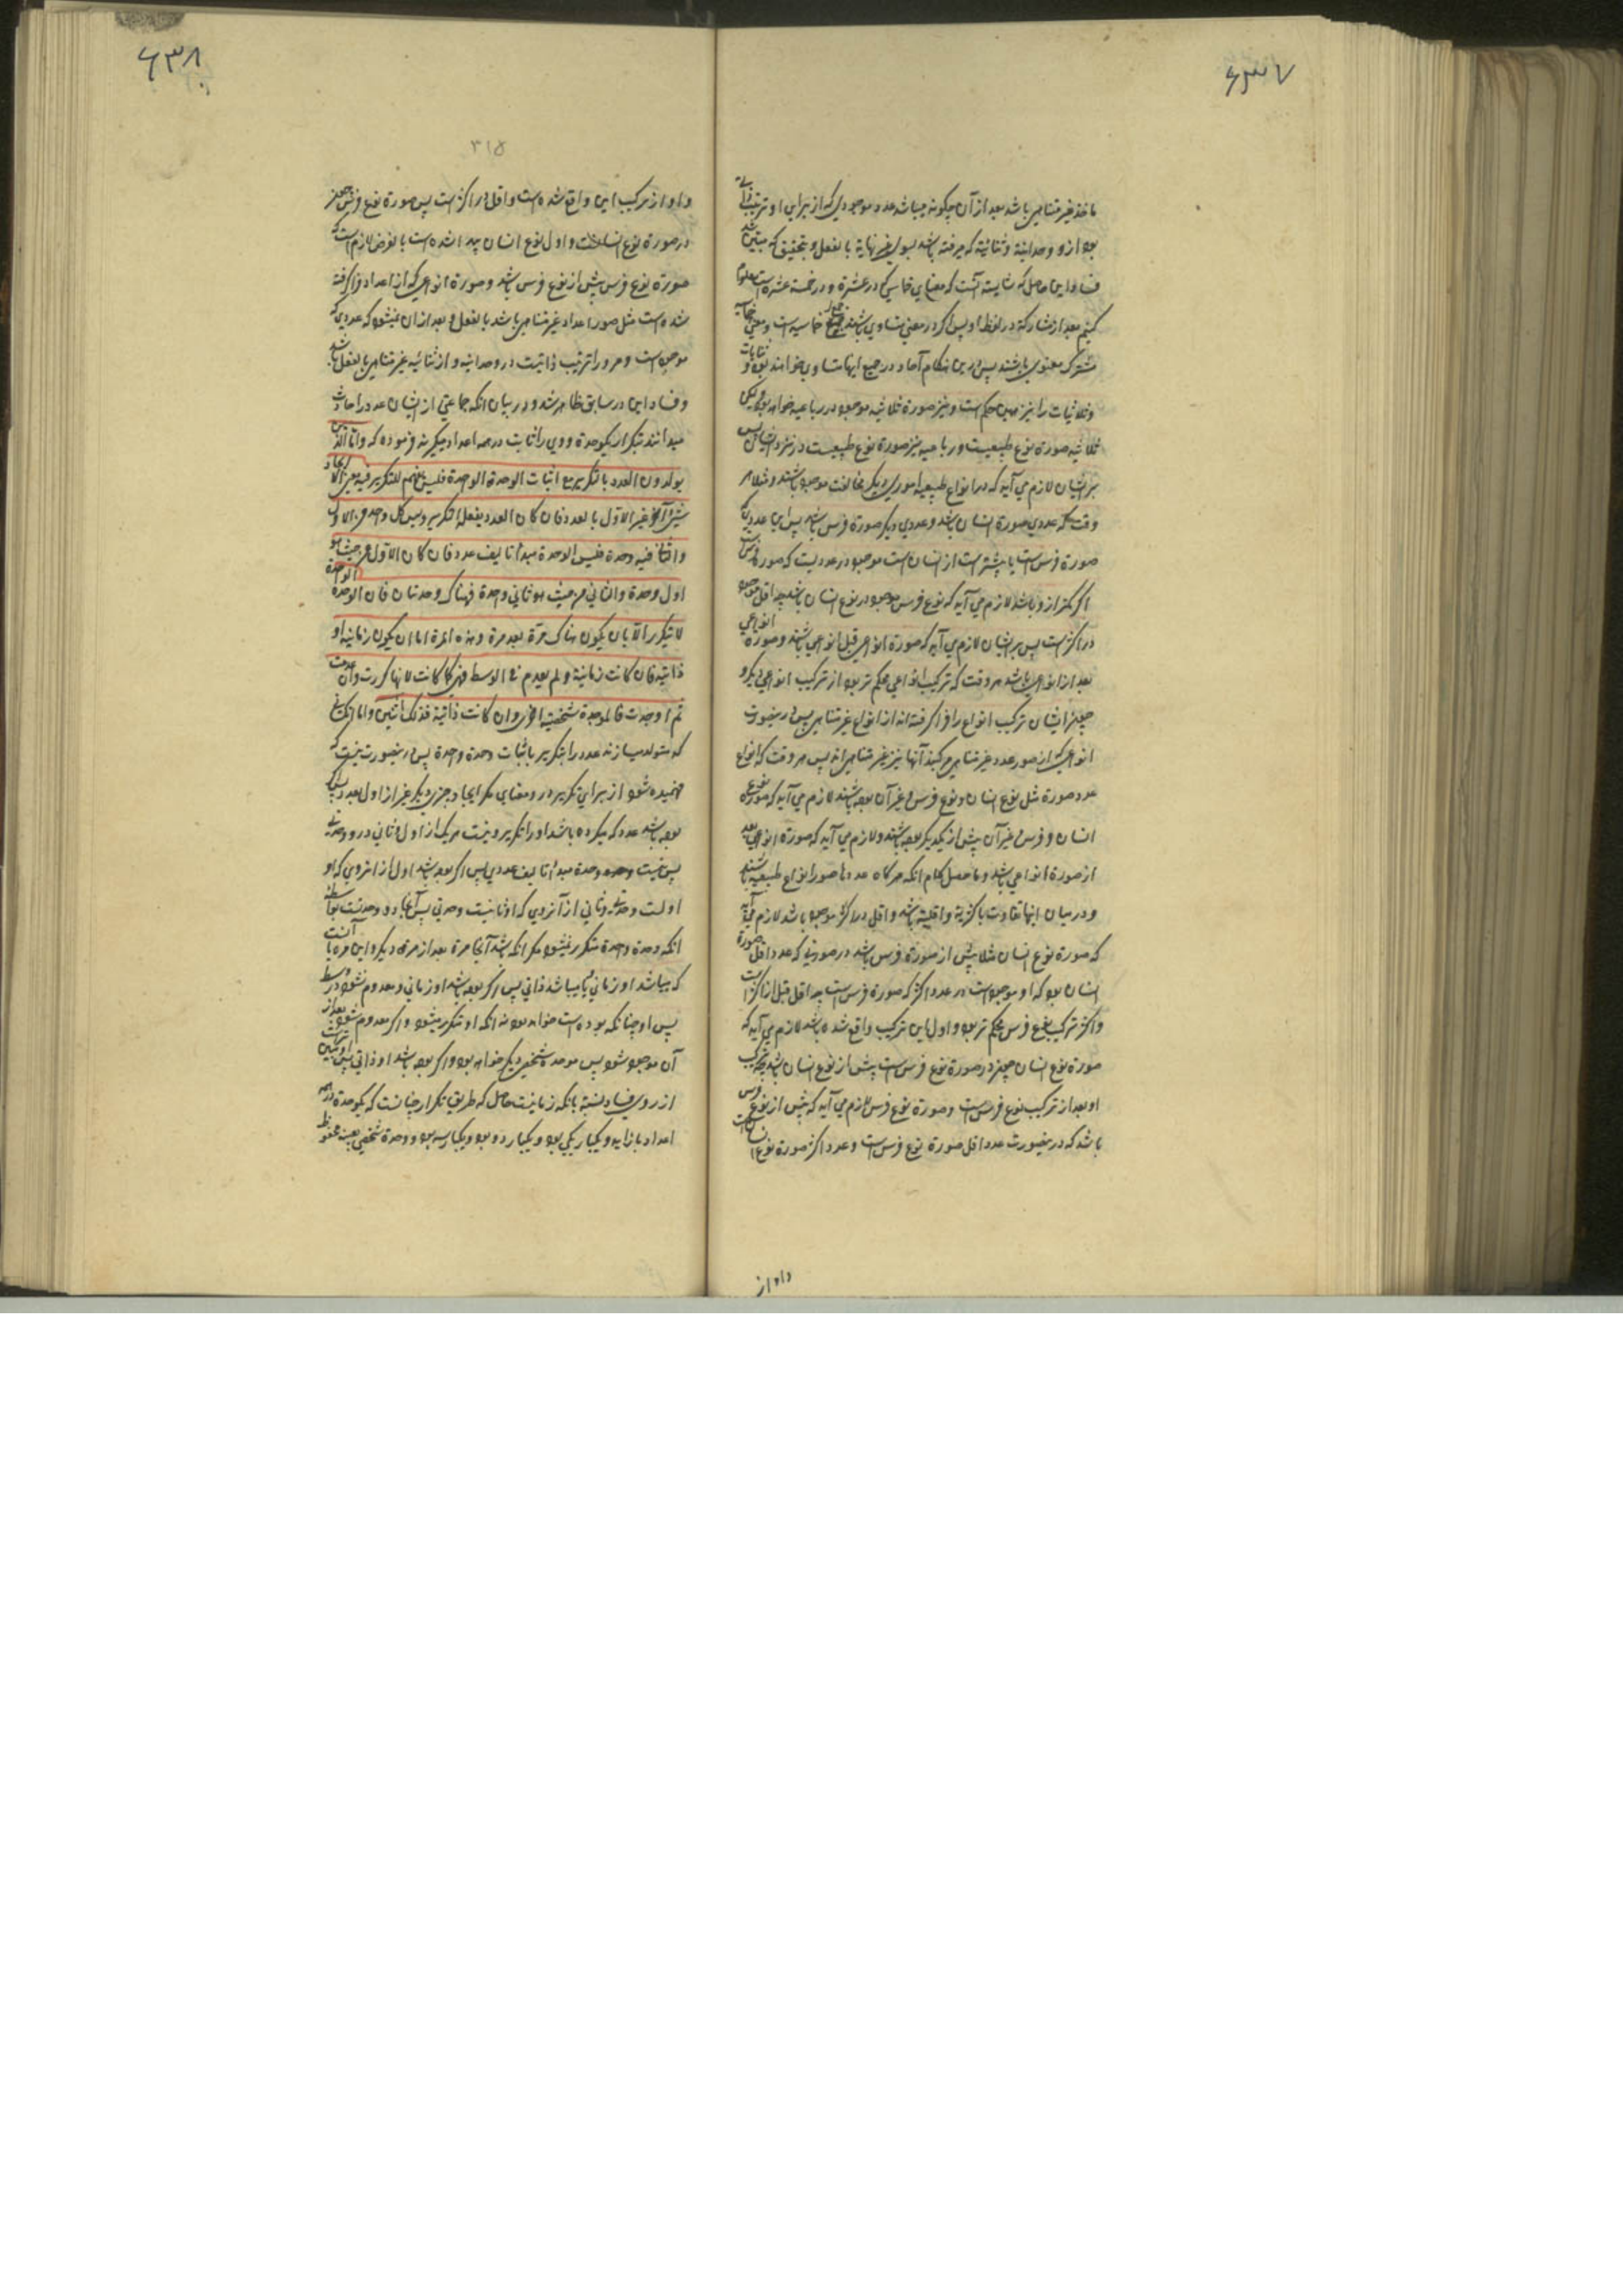 ۶۳۷
ماخذ غیر متناهی باشد بعد از آن چگونه میباشد عدد موجودی که از برای او ترتیب
بود از و وحدانیة و ثنائیة که مرفته باشد بسوی غیر نهایة بالفعل و بتحقیق که مبین شد
فساد این حاصل که شایسته آنست که معنای خماسی که در عشرة و در خمسة عشرة است
کنیم بعد از مشارکة در لفظ او پس اگر در معنی متساوی باشند خماسیه است و معنی
مشترک معنوی باشند پس درین هنگام آحاد در جمیع اینها متساوی خواهند بود و
و ثلاثیات را نیز همین حکم است و نیز صورة ثلاثیه موجود در رباعیه خواهد بود لیکن
ثلاثیه صورة نوع طبیعیست و رباعیه نیز صورة نوع طبیعیست در نزد ایشان پس
بر ایشان لازم می آید که در انواع طبیعیه اموری دیگر مخالفت موجود باشند و مثلا هر
وقت که عددی صورة انسان باشد و عددی دیگر صورة فرس باشد پس این عدد که
صورة فرس است یا بیشتر است از انسان است موجود در عددیست که صورة فرس است
اگر کمتر از و باشد لازم می آید که نوع فرس موجود در نوع انسان باشد چه اقل موجود
در اکثر است پس بر ایشان لازم می آید که صورة انواعی قبل انواعی باشند و صورة انواعی
بعد از انواعی باشد هر وقت که ترکیب انواعی محکم تر بود از ترکیب انواعی دیگر و
چون ایشان ترکیب انواع را فرا گرفته اند از انواع غیر متناهی پس درینصورت
انواعی که از صور عدد غیر متناهی مرکبند آنها نیز غیر متناهی اند پس هر وقت که انواع
عدد صورة مثل نوع انسان و نوع فرس و غیر آن بوده باشند لازم می آید که صورة نوع
انسان و فرس و غیر آن پیش از یکدیگر بوده باشند و لازم می آید که صورة انواعی بعد
از صورة انواعی باشد و ماحصل کلام آنکه هر گاه عددها صور انواع طبیعیه باشند
و در میان اینها تفاوت باکثریة و اقلیة باشد و اقل در اکثر موجود باشد لازم می آید
که صورة نوع انسان مثلا پیش از صورة فرس باشد در صورتی که عدد اقل صورة
انسان بود که او موجود است در عدد اکثر که صورة فرس است چه اقل قبل از اکثر است
و اگر ترکیب نوع فرس محکم تر بود و اول این ترکیب واقع شده باشد لازم می آید که
صورة نوع انسان چون در صورة نوع فرس است پیش از نوع انسان باشد چه ترکیب
او بعد از ترکیب نوع فرس است و صورة نوع فرس لازم می آید که پیش از نوع فرس
باشد که درینصورت عدد اقل صورة نوع فرس است و عدد اکثر صورة نوع انسان است
و او از
۶۳۸
۳۱۵
و او از ترکیب این واقع شده است و اقل در اکثر است پس صورة نوع فرس چون
در صورة نوع انسانست و اول نوع انسان پیدا شده است بالفرض لازم است که
صورة نوع فرس پیش از نوع فرس باشد و صورة انواعی که از اعداد فرا گرفته
شده است مثل صور اعداد غیر متناهی باشد بالفعل و بعد از آن میشود که عددی که
موجود است و مر و را ترتیب ذاتیت در وحدانیه و از ثنائیه غیر متناهی بالفعل باشد
و فساد این در سابق ظاهر شد و در بیان آنکه جماعتی از ایشان عدد را حادث
میدانند بتکرار یک وحدة و وی را ثابت در همه اعداد میگیرند فرموده که و اما الذین
یولدون العدد بالتکریر مع اثبات الوحدة الواحدة فلیس یفهم للتکریر فیه معنی الا ایجاد
شیء آخر غیر الاول بالعدد فان کان العدد یفعله التکریر و لیس کل واحد من الاول
و الثانی فیه وحدة فلیس الوحدة مبدأ تالیف عدد فان کان الاول من حیث هو
اول وحدة و الثانی من حیث هو ثانی وحدة فهناک وحدتان فان الوحدة الواحدة
لا یتکرر الا بان یکون هناک مرة بعد مرة و هذه المرة اما ان یکون زمانیة او
ذاتیة فان کانت زمانیة و لم یعدم فی الوسط فهی کما کانت لا انها کررت و ان عدمت
ثم اوجدت فالموجدة شخصیة اخری و ان کانت ذاتیة فذلک ابین و اما آنکسانی
که متولد میسازند عدد را بتکریر با اثبات وحدة واحدة پس درینصورت نیست که
فهمیده شود از برای تکریر در و معنایی مگر ایجاد چیزی دیگر غیر از اول بعدد پس اگر
بوده باشد عدد که میکرده باشد او را تکریر و نیست هر یک از اول و ثانی در و وحدتی
پس نیست وحدة مبدأ تالیف عددی پس اگر بوده باشد اول از آنروی که او
اولست وحدتی و ثانی از آنروی که او ثانیست وحدتی پس آنجا دو وحدتست بواسطه
آنکه وحدة واحدة متکرر نمیشود مگر آنکه باشد آنجا مرة بعد از مرة دیگر و این مره یا آنست
که میباشد او زمانی یا میباشد ذاتی پس اگر بوده باشد او زمانی و معدوم نشود در وسط
پس او چنانکه بوده است خواهد بود نه آنکه او متکرر میشود و اگر معدوم شود بعد از
آن موجود شود پس موجده شخصی دیگر خواهد بود و اگر بوده باشد او ذاتی پس او مبین تر است
از روی فساد نسبت بآنکه زمانیست حاصل که طریق تکرار چنانست که یک وحدة در همه
اعداد باز آید و یکبار یکی بود و یکبار دو بود و یکبار سه بود و وحدة شخصی بعینه محفوظ